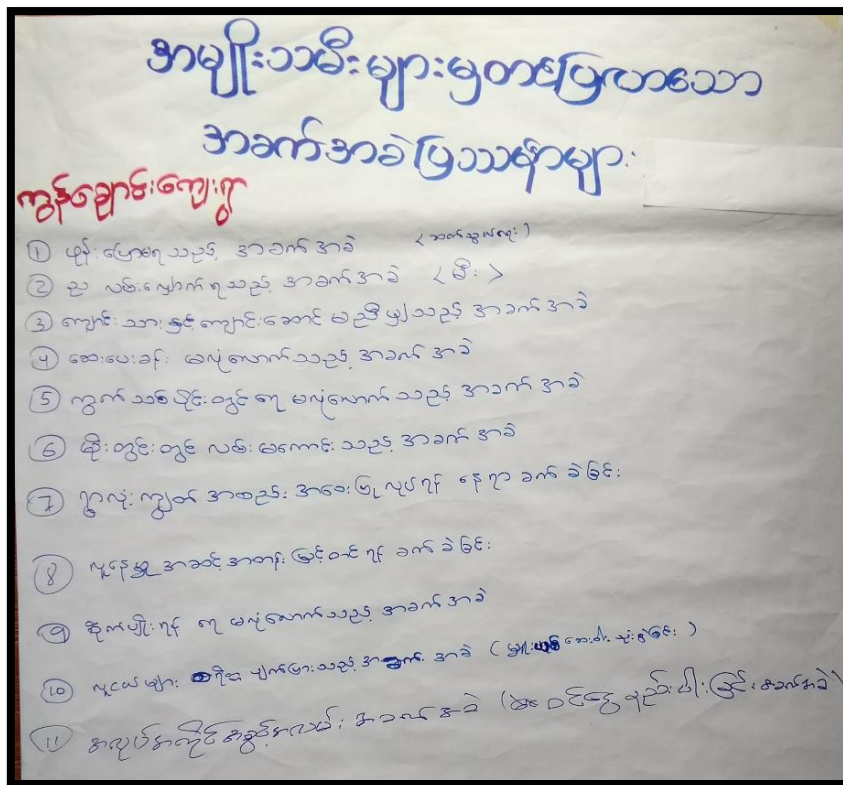 အမျိုးသမီးများမှတင်ပြလာသော
အခက်အခဲပြဿနာများ
ကွန်ချောင်းကျေးရွာ
① ဖုန်းပြောမရသည့် အခက်အခဲ (ဆက်သွယ်ရေး)
② ည လမ်းလျှောက်ရသည့် အခက်အခဲ <မီး>
③ ကျောင်းသားနှင့်ကျောင်းဆောင် မညီမျှသည့် အခက်အခဲ
④ ဆေးပေးခန်း မလုံလောက်သည့် အခက်အခဲ
⑤ ကွက်သစ်ပိုင်းတွင် ရေ မလုံလောက်သည့် အခက်အခဲ
⑥ မိုးတွင်းတွင် လမ်းမကောင်းသည့် အခက်အခဲ
⑦ ရွာလုံးကျွတ် အစည်းအဝေးပြုလုပ်ရန် နေရာ ခက်ခဲခြင်း
⑧ လူနေမှု အဆင့်အတန်း မြှင့်တင်ရန် ခက်ခဲခြင်း
⑨ စိုက်ပျိုးရန် ရေ မလုံလောက်သည့် အခက်အခဲ
⑩ လူငယ်များ စာရိတ္တ ပျက်ပြားသည့် အခက်အခဲ (မူးယစ်ဆေးဝါး သုံးစွဲခြင်း)
⑪ အလုပ်အကိုင်အခွင့်အလမ်း အခက်အခဲ (ဝင်ငွေနည်းပါးခြင်း အခက်အခဲ)